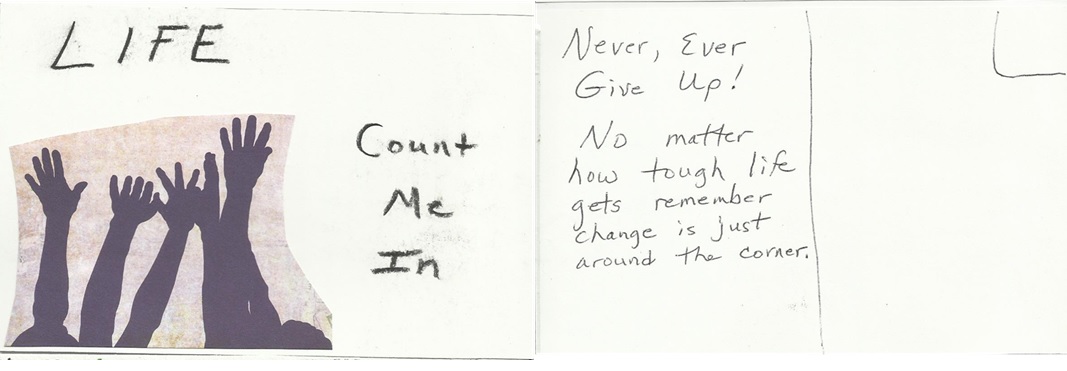 LIFE
Count
Me
In
Never, Ever
Give Up!
No matter
how tough life
gets remember
change is just
around the corner.